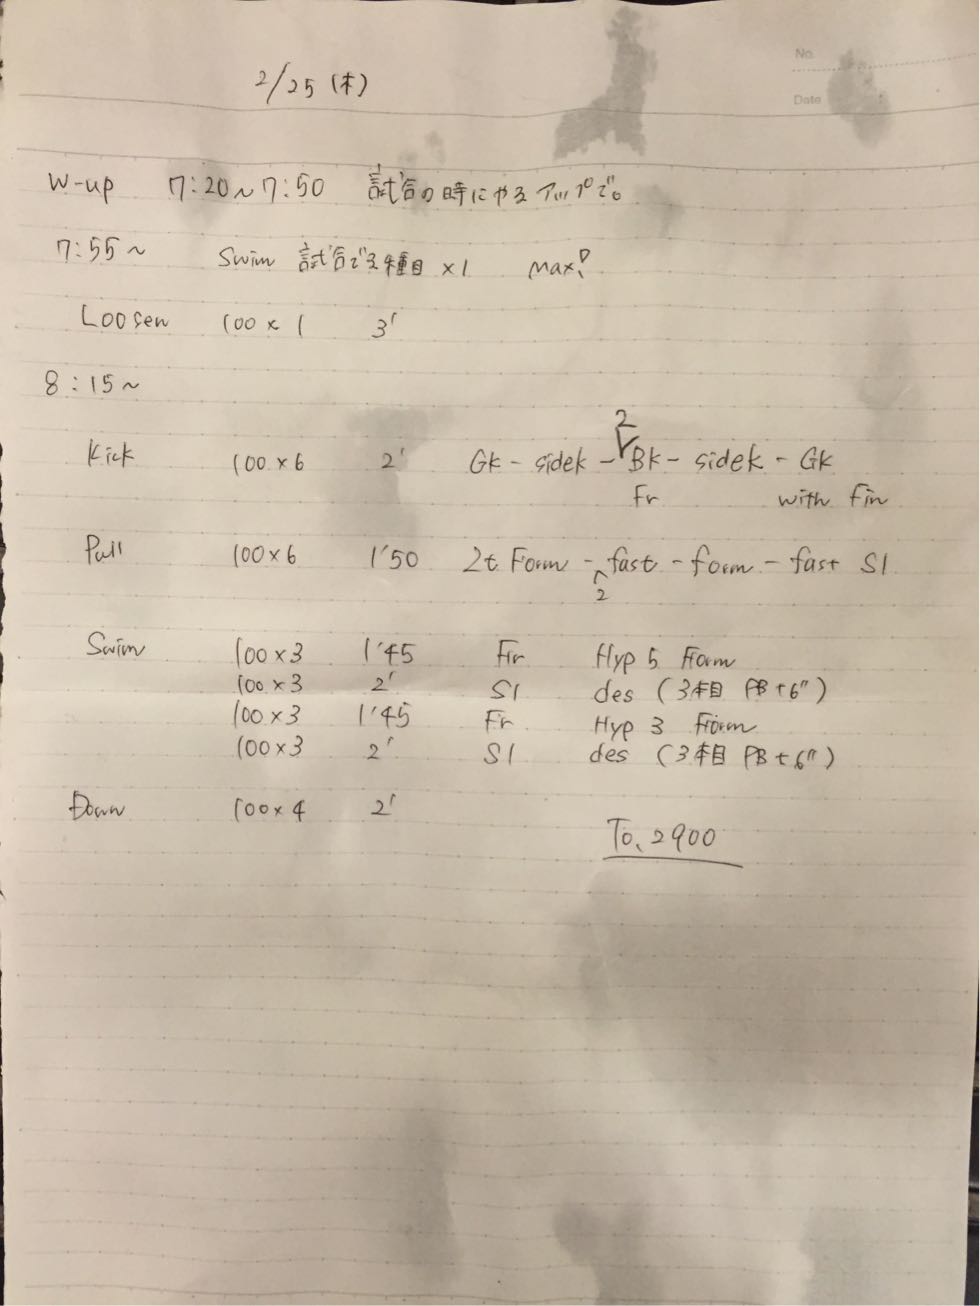 No.
Date
2/25 (木)
W-up 7:20～7:50 試合の時にやるアップで。
7:55～ Swim 試合でる種目 ×1 Max!
Loosen 100×1 3'
8:15～
Kick 100×6 2' Gk - sidek - Bk - sidek - Gk
2
Fr with Fin
Pull 100×6 1'50 2t Form - fast - form - fast S1
2
Swim 100×3 1'45 Fr Hyp 5 Form
100×3 2' S1 des (3本目 PB+6")
100×3 1'45 Fr Hyp 3 Form
100×3 2' S1 des (3本目 PB+6")
Down 100×4 2'
To、2900